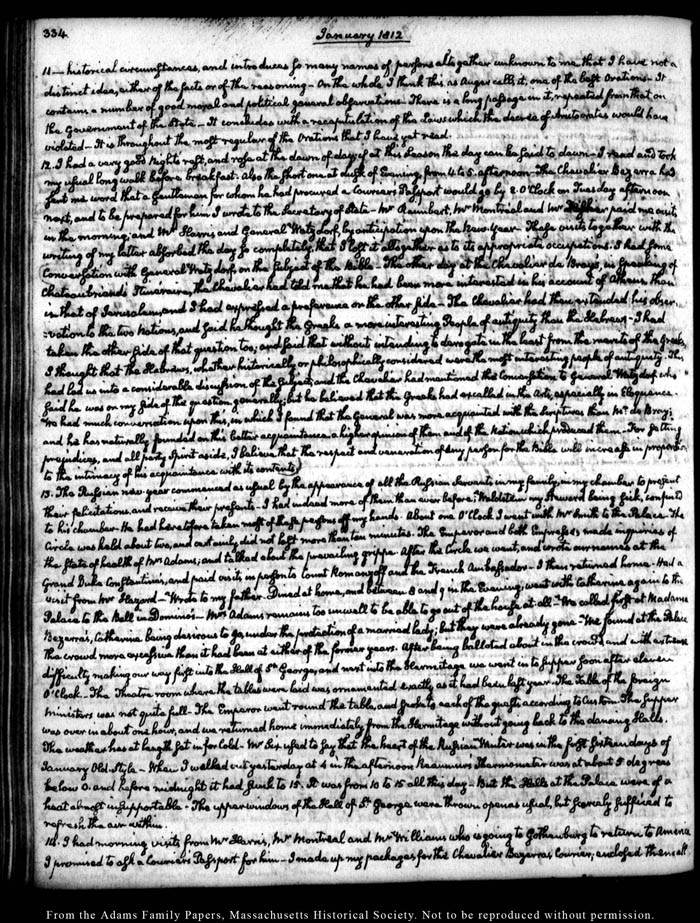 334
January 1812
11.— historical circumstances, and introduces so many names of persons altogether unknown to me, that I have not a
distinct idea, either of the facts or of the reasoning — On the whole I think this as Auger calls it, one of the best Orations — It
contains a number of good moral and political general observations — There is a long passage in it, repeated from that on
the Government of the State — It concludes with a recapitulation of the Laws which the decree of Aristocrates would have
violated — It is throughout the most regular of the Orations that I have yet read.
12. I had a very good Night's rest, and rose at the dawn of day, if at this Season the day can be said to dawn — I read and took
my usual long walk before breakfast. Also the short one at dusk of Evening, from 4 to 5. afternoon — The Chevalier Bezerra had
sent me word that a Gentleman for whom he had procured a Courier's Passport would go by 2. O'Clock on Tuesday afternoon
next, and to be prepared for him I wrote to the Secretary of State — Mr Raimbert, Mr Montréal and Mr paid me visits
in the morning; and Mr Harris and General Watzdorf, by anticipation upon the New-year — These visits together with the
writing of my letter absorbed the day so completely, that I left it altogether as to its appropriate occupations. I had some
Conversation with General Watzdorf, on the subject of the Bible — The other day at the Chevalier de Bray's, in speaking of
Chateaubriand's Itineraire, the Chevalier had told me that he had been more interested in his account of Athens, than
in that of Jerusalem, and I had expressed a preference on the other side — The Chevalier had then extended his obser-
-vation to the two Nations, and said he thought the Greeks a more interesting People of antiquity than the Hebrews — I had
taken the other side of that question too; and said that without intending to derogate in the least from the merits of the Greeks,
I thought that the Hebrews, whether historically or philosophically considered were the most interesting people of antiquity. This
had led us into a considerable discussion of the subject; and the Chevalier had mentioned this Conversation to General Watzdorf who
said he was on my side of the question generally; but he believed that the Greeks had excelled in the Arts, especially in Eloquence
We had much conversation upon this, in which I found that the General was more acquainted with the scriptures than Mr de Bray;
and he has naturally founded on this better acquaintance a higher opinion of them and of the Nation which produced them — For setting
prejudices, and all party spirit aside, I believe that the respect and veneration of any person for the Bible will increase in proportion
to the intimacy of his acquaintance with its contents.
13. The Russian new year commenced as usual by the appearance of all the Russian Servants in my family, in my chamber to present
their felicitations, and receive their presents — I had indeed more of them than ever before; Waldstein my Steward being sick, confined
to his chamber. He had heretofore taken most of these persons off my hands. About one O'Clock I went with Mr Smith to the Palace. The
Circle was held about two, and certainly did not last more than ten minutes. The Emperor and both Empresses made inquiries of
the state of health of Mrs Adams; and talked about the prevailing grippe — After the Circle we went, and wrote our names at the
Grand Duke Constantine's, and paid visits in person to Count Romanzoff and the French Ambassador — I then returned home. Had a
visit from Mr Hazard — Wrote to my father. Dined at home, and between 8 and 9 in the Evening, went with Catherine again to the
Palace to the Ball in Dominos — Mrs Adams remains too unwell to be able to go out of the house at all — We called first at Madame
Bezerra's, Catherine being desirous to go under the protection of a married lady; but they were already gone — We found at the Palace
the crowd more excessive than it had been at either of the former years. After being balloted about in the crowd, and with extreme
difficulty making our way first into the Hall of St George, and next into the Hermitage we went in to supper soon after eleven
O'Clock — The Theatre room where the tables were laid was ornamented exactly as it had been last year — The Table of the foreign
Ministers was not quite full — The Emperor went round the table, and spoke to each of the guests according to Custom. The supper
was over in about one hour, and we returned home immediately from the Hermitage without going back to the dancing Halls.
The weather has at length set in for Cold — Mr Bex used to say that the heart of the Russian Winter was in the first fifteen days of
January Old-style — When I walked out yesterday at 4 in the afternoon Reaumur's Thermometer was at about 5 degrees
below 0. and before midnight it had sunk to 15. It was from 10 to 15 all this day — But the Halls at the Palace were of a
heat almost insupportable — The upper windows of the Hall of St George were thrown open as usual, but scarcely sufficed to
refresh the air within.
14. I had morning visits from Mr Harris, Mr Montréal and Mr Williams who is going to Gothenburg to return to America
I promised to ask a Courier's Passport for him — I made up my packages for the Chevalier Bezerra's Courier; enclosed them all
From the Adams Family Papers, Massachusetts Historical Society. Not to be reproduced without permission.